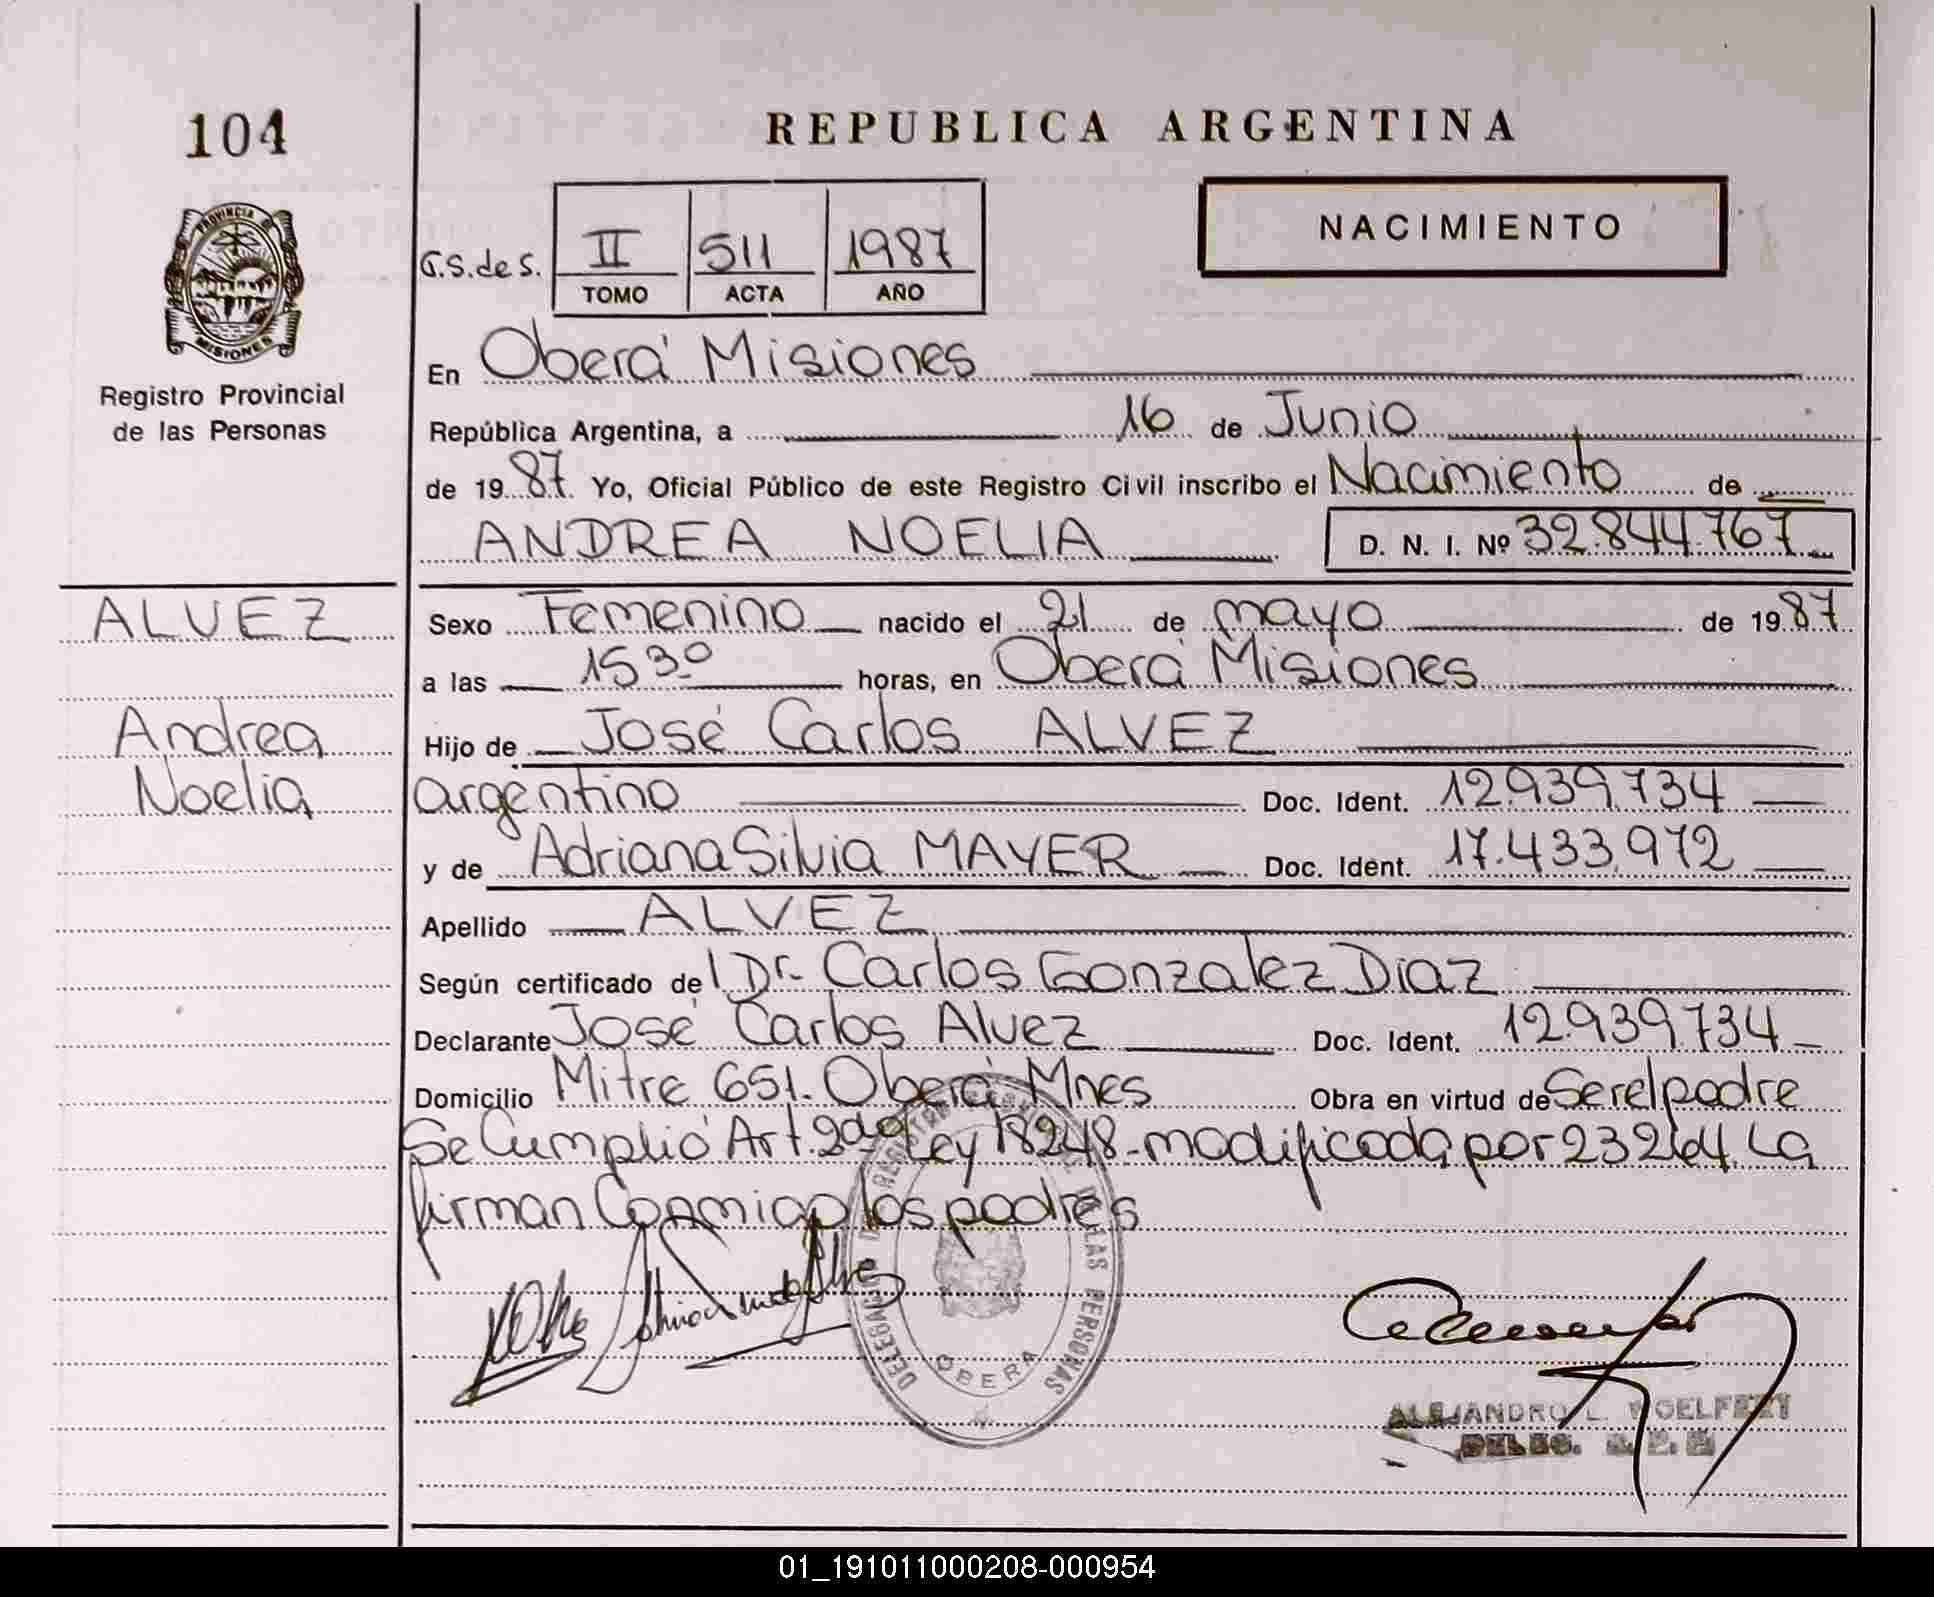 104
REPUBLICA ARGENTINA
PROVINCIA
MISIONES
Registro Provincial
de las Personas
NACIMIENTO
G.S.de S. II 511 1987
TOMO ACTA AÑO
En Oberá Misiones
República Argentina, a 16 de Junio
de 1987. Yo, Oficial Público de este Registro Civil inscribo el Nacimiento de
ANDREA NOELIA D. N. I. Nº 32.844.767
ALVEZ
Andrea
Noelia
Sexo Femenino nacido el 21 de mayo de 1987
a las 15 30 horas, en Oberá Misiones
Hijo de José Carlos ALVEZ
argentino Doc. Ident. 12.939.734
y de Adriana Silvia MAYER Doc. Ident. 17.433.972
Apellido ALVEZ
Según certificado del Dr. Carlos Gonzalez Diaz
Declarante José Carlos Alvez Doc. Ident. 12.939.734
Domicilio Mitre 651. Oberá Mnes Obra en virtud de Ser el padre
Se Cumplió Art. 2do Ley 18248- modificada por 23264. La
firman Conmigo los padres
DELEGACION DE REGISTRO PROVINCIAL DE LAS PERSONAS
OBERA
ALEJANDRO L.
DELEG.
01_191011000208-000954